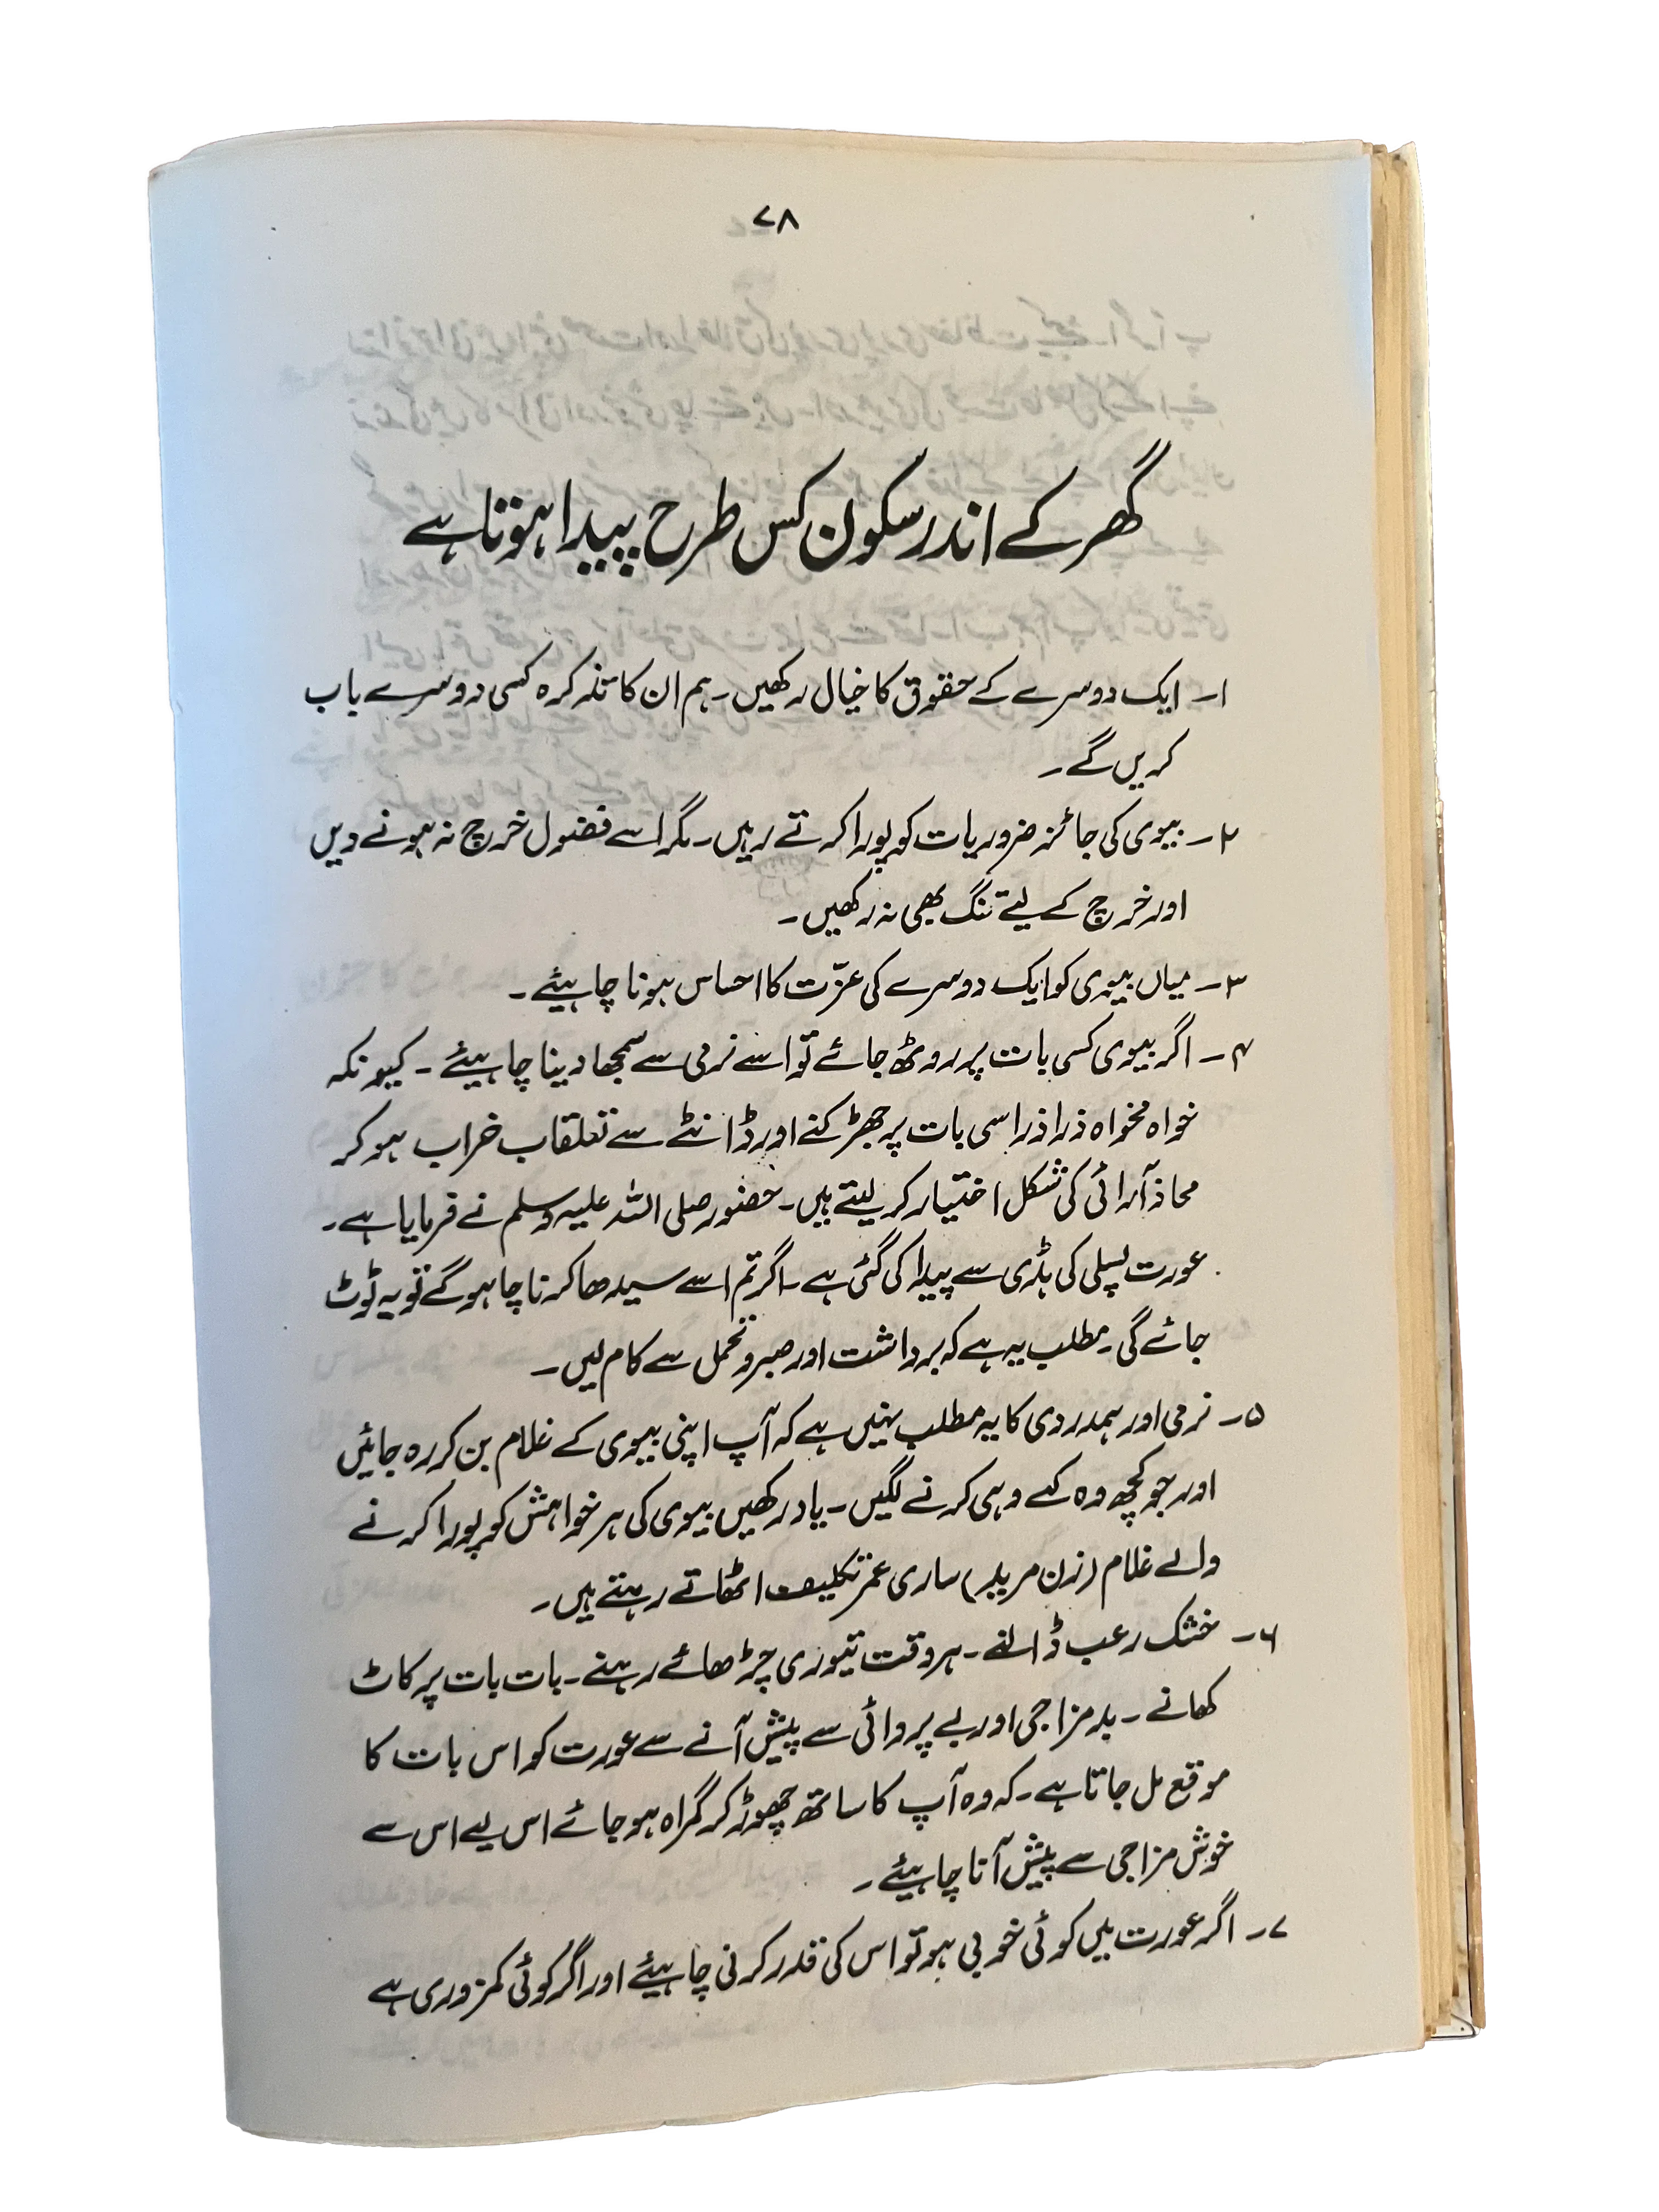 ۷۸
گھر کے اندر سکون کس طرح پیدا ہوتا ہے
۱۔ ایک دوسرے کے حقوق کا خیال رکھیں۔ ہم ان کا تذکرہ کسی دوسرے باب
کریں گے۔
۲۔ بیوی کی جائز ضروریات کو پورا کرتے رہیں۔ مگر اسے فضول خرچ نہ ہونے دیں
اور خرچ کے لیئے تنگ بھی نہ رکھیں۔
۳۔ میاں بیوی کو ایک دوسرے کی عزّت کا احساس ہونا چاہیئے۔
۴۔ اگر بیوی کسی بات پر روٹھ جائے تو اسے نرمی سے سمجھا دینا چاہیئے۔ کیونکہ
خواہ مخواہ ذرا ذرا سی بات پر جھڑکنے اور ڈانٹنے سے تعلقاب خراب ہو کر
محاذ آرائی کی شکل اختیار کر لیتے ہیں۔ حضور صلی اللہ علیہ وسلم نے فرمایا ہے۔
عورت پسلی کی ہڈی سے پیدا کی گئی ہے۔ اگر تم اسے سیدھا کرنا چاہو گے تو یہ ٹوٹ
جائے گی۔ مطلب یہ ہے کہ برداشت اور صبر و تحمل سے کام لیں۔
۵۔ نرمی اور ہمدردی کا یہ مطلب نہیں ہے کہ آپ اپنی بیوی کے غلام بن کر رہ جائیں
اور جو کچھ وہ کہے وہی کرنے لگیں۔ یاد رکھیں بیوی کی ہر خواہش کو پورا کرنے
والے غلام (زن مرید) ساری عمر تکلیف اٹھاتے رہتے ہیں۔
۶۔ خشک رعب ڈالنے۔ ہر وقت تیوری چڑھائے رہنے۔ بات بات پر کاٹ
کھانے۔ بدمزاجی اور بے پروائی سے پیش آنے سے عورت کو اس بات کا
موقع مل جاتا ہے۔ کہ وہ آپ کا ساتھ چھوڑ کر گمراہ ہو جائے اس لیے اس سے
خوش مزاجی سے پیش آنا چاہیئے۔
۷۔ اگر عورت میں کوئی خوبی ہو تو اس کی قدر کرنی چاہیئے اور اگر کوئی کمزوری ہے